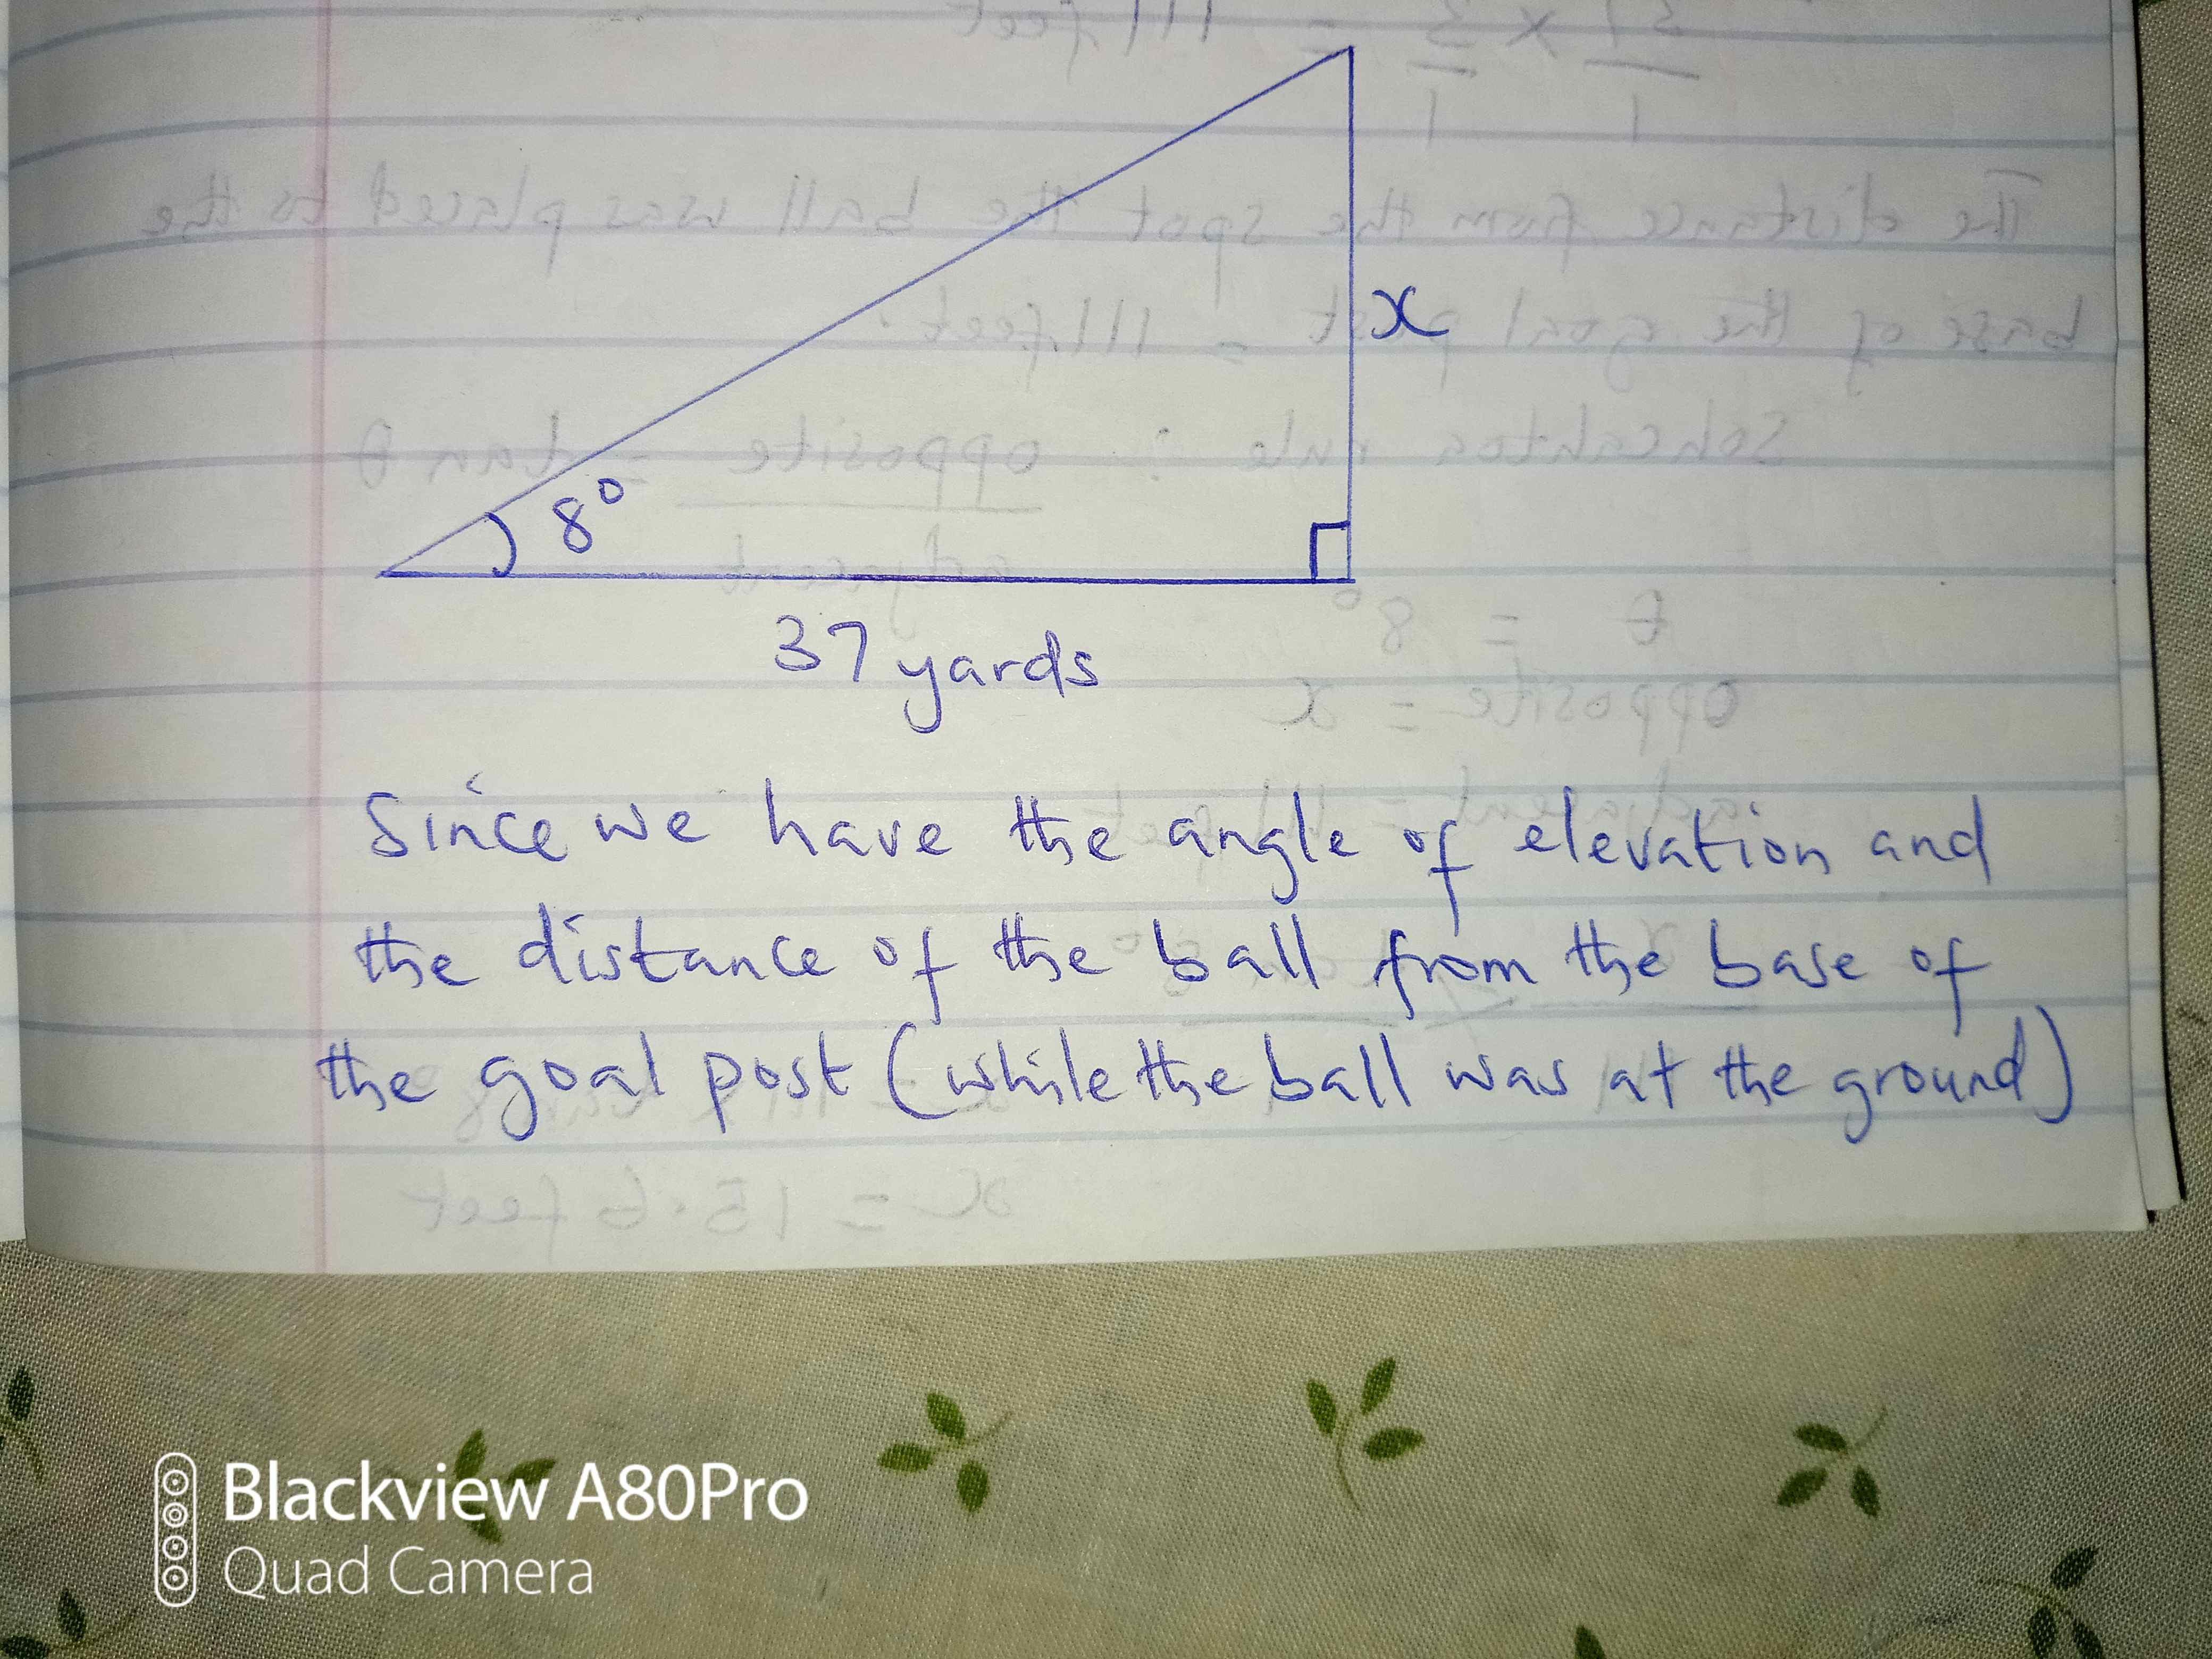 x
8°
37 yards
Since we have the angle of elevation and
the distance of the ball from the base of
the goal post (while the ball was at the ground)
Blackview A80Pro
Quad Camera